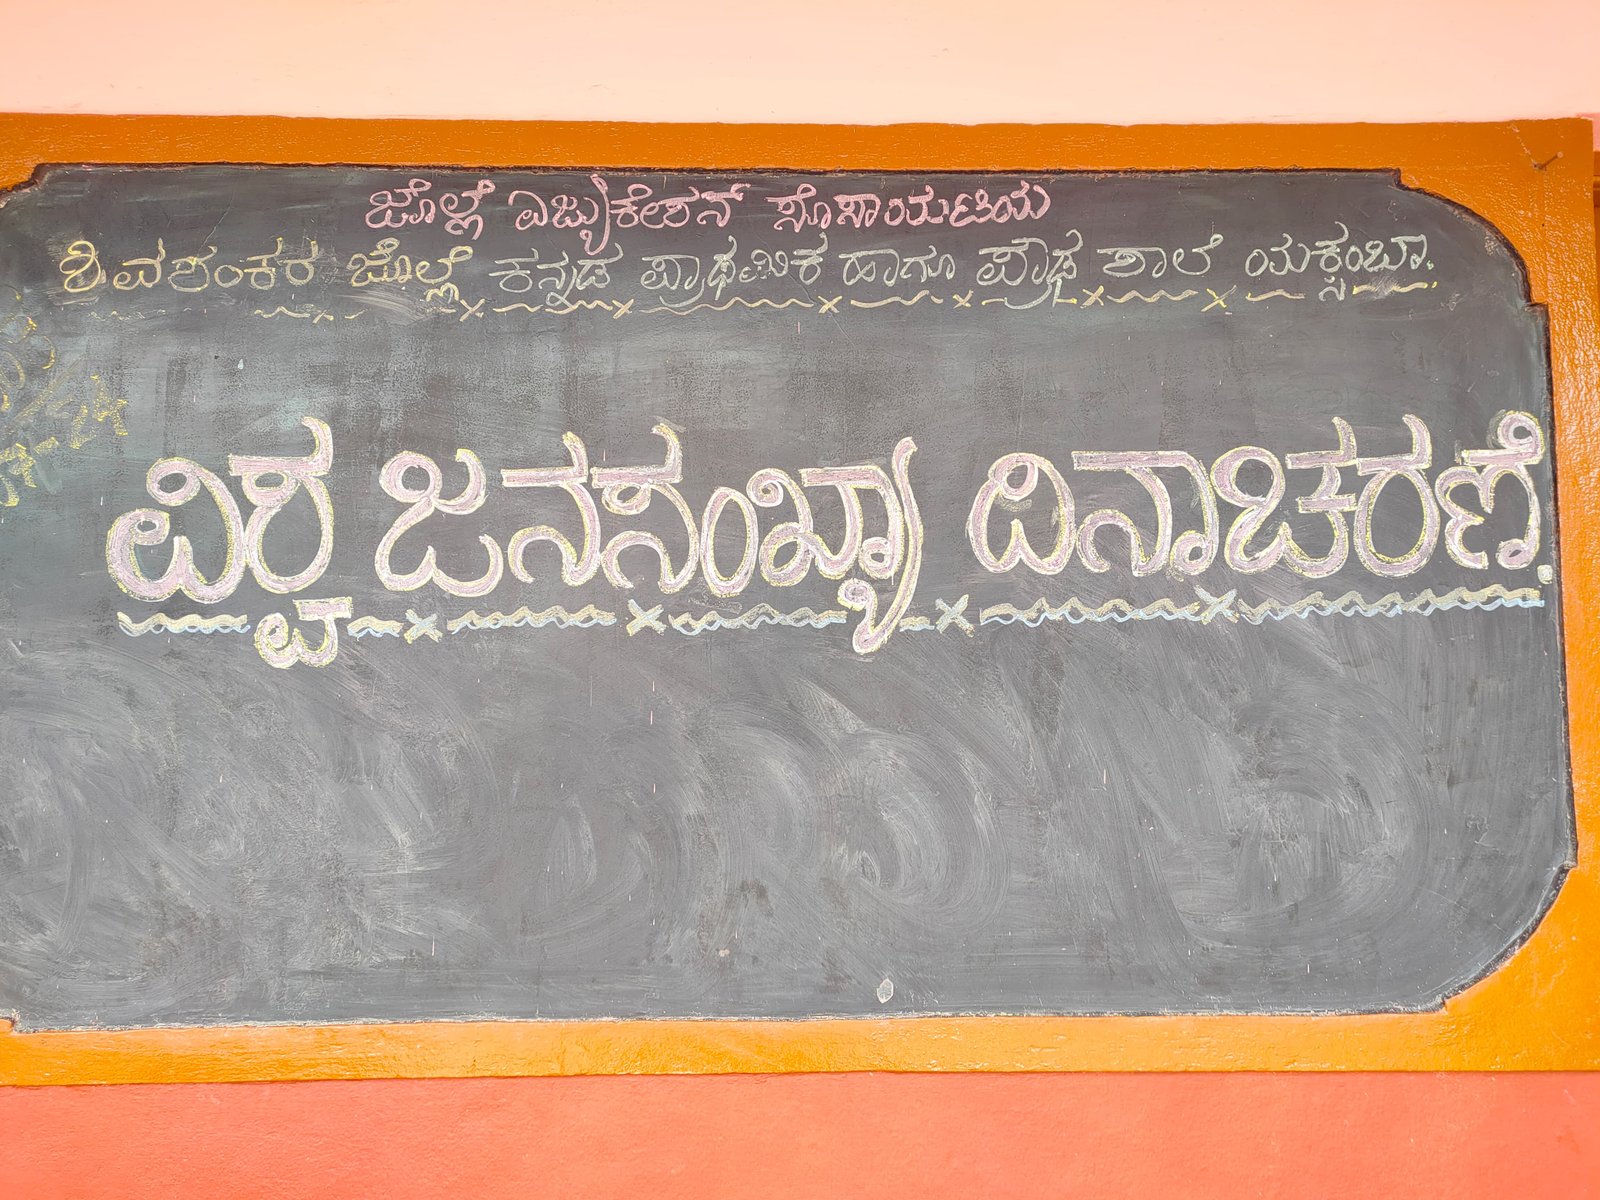 ಜೊಲ್ಲೆ ಎಜ್ಯುಕೇಶನ್ ಸೊಸಾಯಟಿಯ
ಶಿವಶಂಕರ ಜೊಲ್ಲೆ ಕನ್ನಡ ಪ್ರಾಥಮಿಕ ಹಾಗೂ ಪ್ರೌಢ ಶಾಲೆ ಯಕ್ಸಂಬಾ.
ವಿಶ್ವ ಜನಸಂಖ್ಯಾ ದಿನಾಚರಣೆ.